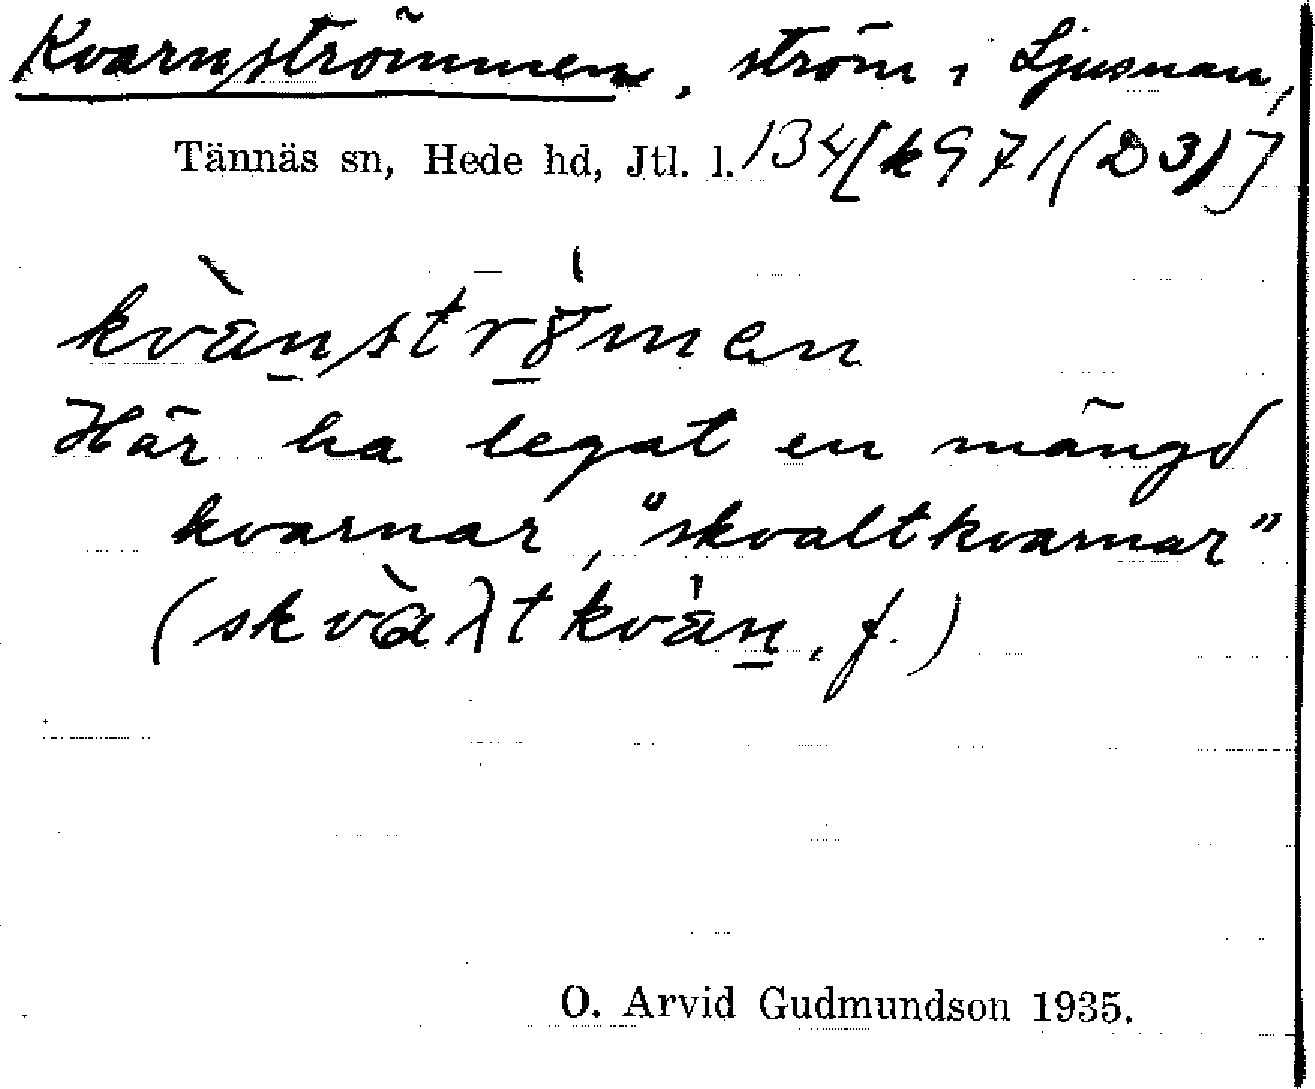 Kvarnströmmen, ström i Ljusnan,
Tännäs sn, Hede hd, Jtl. l. 134[k971(D3)]
kvàn̲strö̲́man
Här ha legat en mängd
kvarnar, "skvaltkvarnar"
(skvàλtkván̲, f.)
O. Arvid Gudmundson 1935.